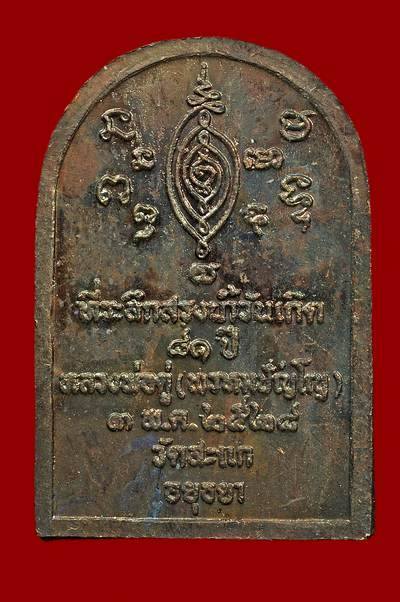 ที่ระลึกสรงน้ำวันเกิด
๘๑ ปี
หลวงพ่อดู่(พรหมปัญโญ)
๓ พ.ค.๒๕๒๘
วัดสะแก
อยุธยา